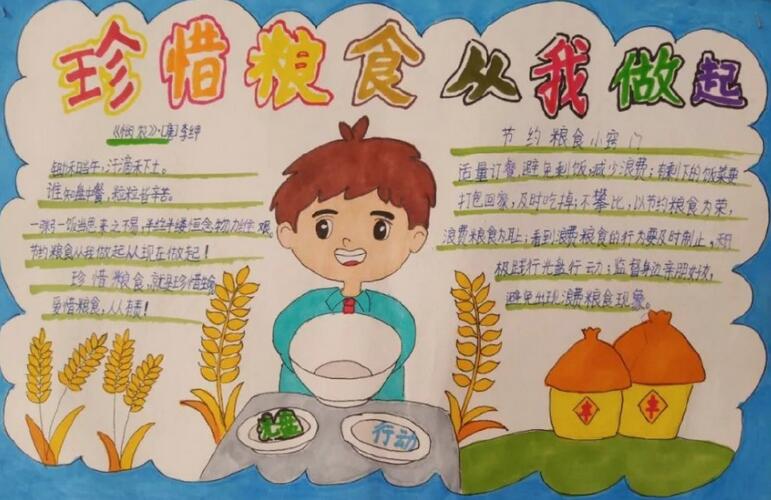 珍惜粮食从我做起
《悯农》·[唐]李绅
锄禾日当午,汗滴禾下土。
谁知盘中餐,粒粒皆辛苦。
一粥一饭当思来之不易,半丝半缕恒念物力维艰。
节约粮食从我做起从现在做起!
珍惜粮食,就是珍惜
爱惜粮食,人人有责!
节约粮食小窍门
适量订餐避免剩饭,减少浪费;有剩下的饭菜要
打包回家,及时吃掉;不攀比,以节约粮食为荣,
浪费粮食为耻;看到浪费粮食的行为要及时制止,积
极践行光盘行动;监督身边亲朋好友,
避免出现浪费粮食现象。
光盘
行动
丰
丰